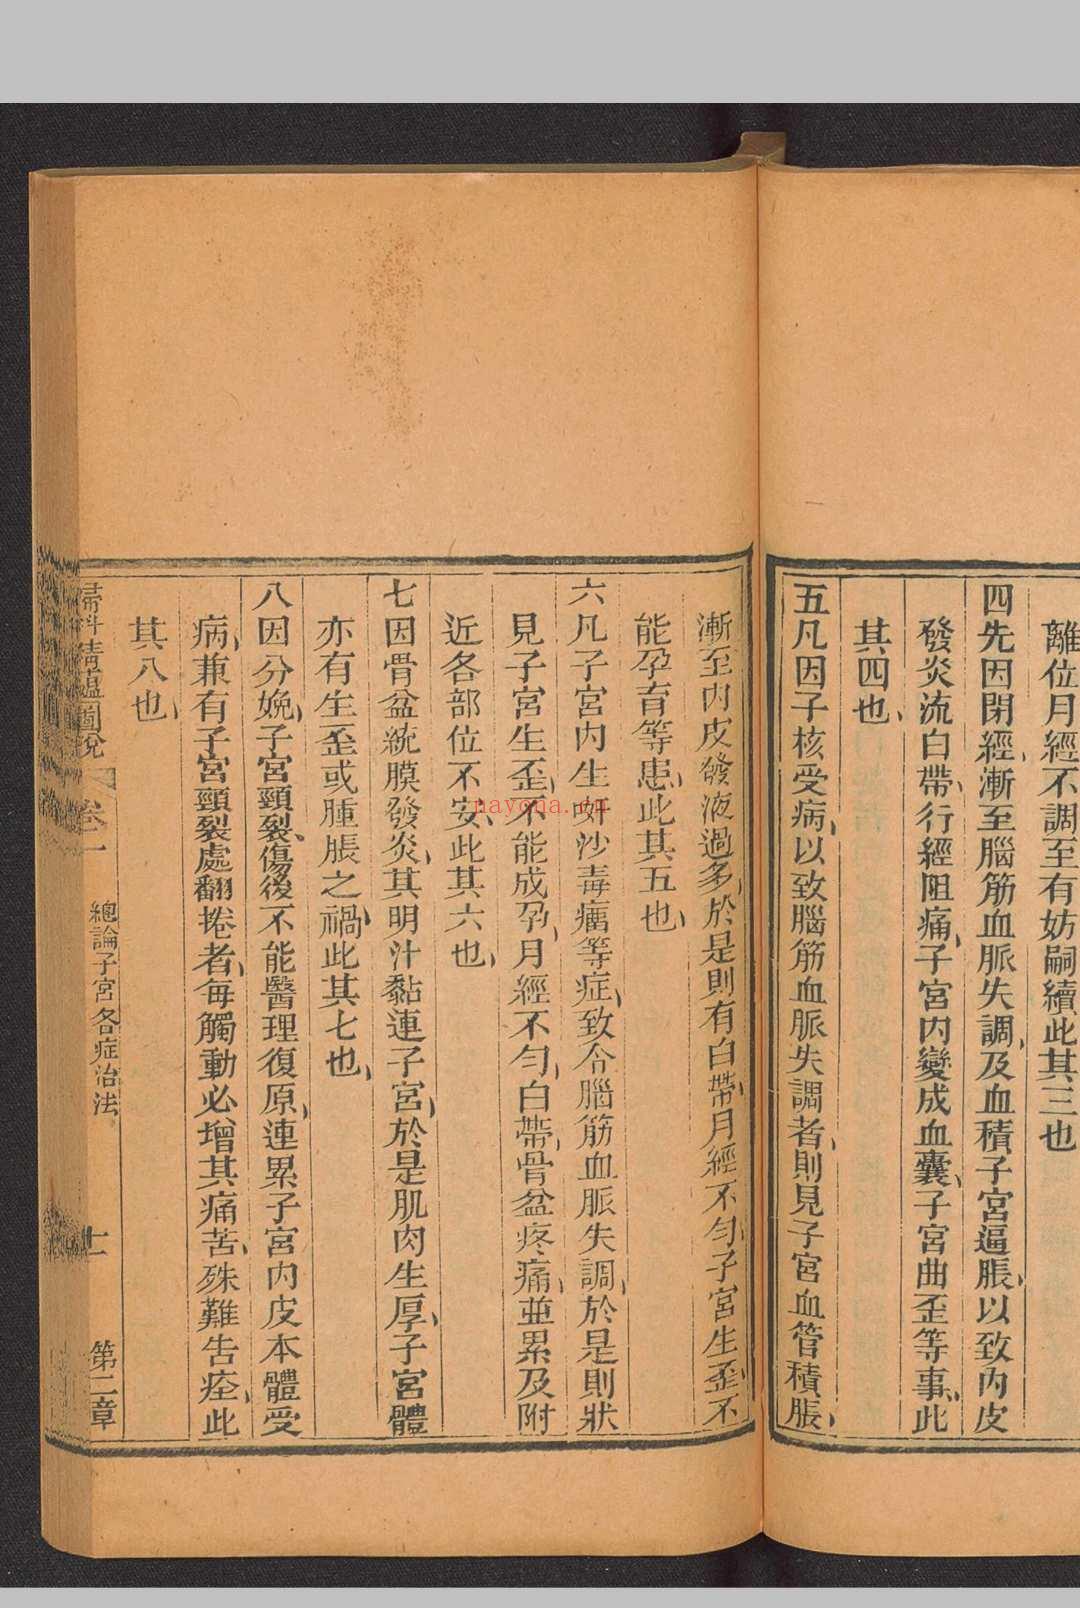 離位月經不調至有妨嗣續此其三也
四先因閉經漸至腦筋血脈失調、及血積子宮逼脹、以致內皮
發炎流白帶、行經阻痛、子宮內變成血囊、子宮曲歪等事、此
其四也、
五凡因子核受病、以致腦筋血脈失調者、則見子宮血管積脹、
漸至內皮發液過多、於是則有白帶、月經不勻、子宮生歪、不
能孕育等患、此其五也、
六凡子宮內生蚧沙毒癘等症、致令腦筋血脈失調、於是則狀
見子宮生歪、不能成孕、月經不勻、白帶、骨盆疼痛、並累及附
近各部位不安、此其六也、
七因骨盆統膜發炎、其明汁黏連子宮、於是肌肉生厚、子宮體
亦有生歪或腫脹之禍、此其七也、
八因分娩、子宮頸裂、傷後不能醫理復原、連累子宮內皮本體受
病、兼有子宮頸裂處翻捲者、每觸動必增其痛苦、殊難告痊、此
其八也、
婦科精蘊圖說
卷一
總論子宮各症治法
十一
第二章
nayona.cn